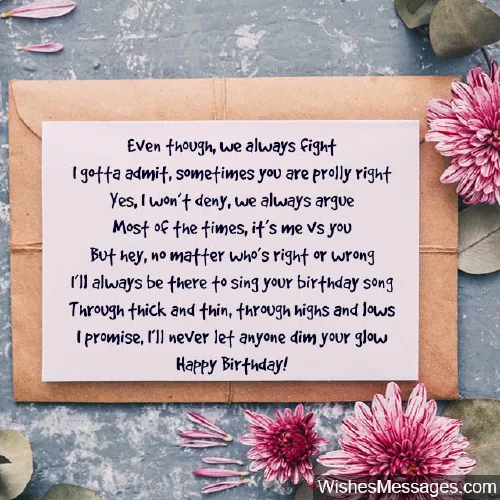 Even though, we always fight
I gotta admit, sometimes you are prolly right
Yes, I won't deny, we always argue
Most of the times, it's me vs you
But hey, no matter who's right or wrong
I'll always be there to sing your birthday song
Through thick and thin, through highs and lows
I promise, I'll never let anyone dim your glow
Happy Birthday!
WishesMessages.com